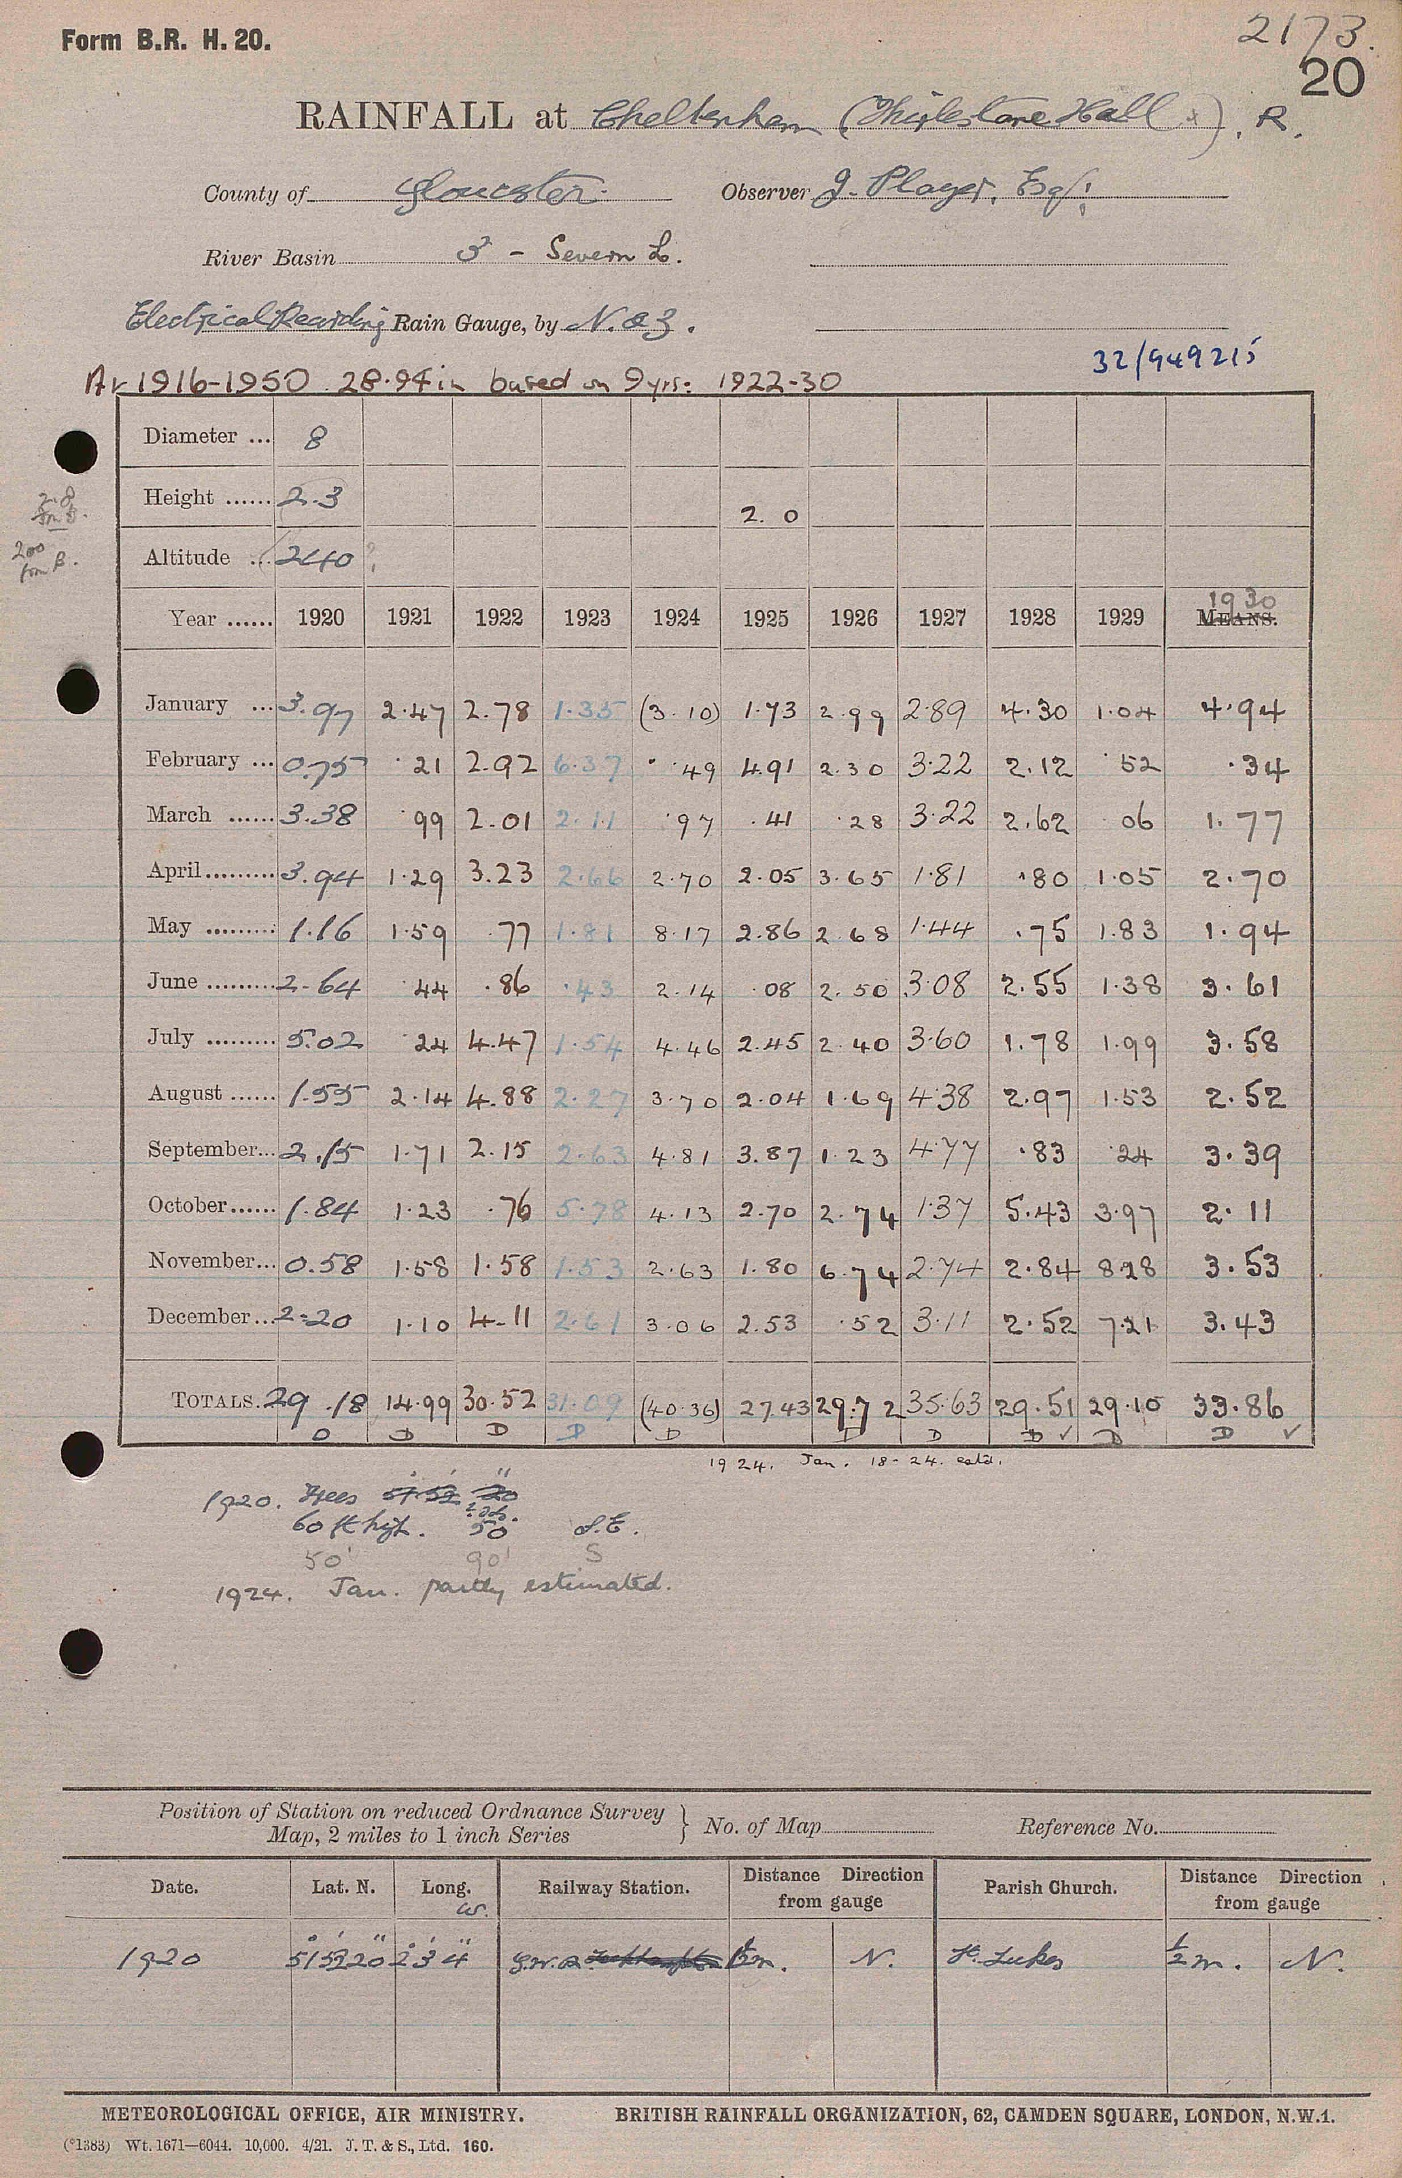 Form B.R. H. 20.
2173.
20
RAINFALL at Cheltenham (Thirlestane Hall x). R.
County of Gloucester. Observer J. Player, Esq:
River Basin 3 - Severn L.
Electrical Recording Rain Gauge, by N. & Z.
32/949215
Av 1916-1950 28.94 in based on 9 yrs: 1922-30
Diameter ... 8
Height ...... 2.3 2.0
Altitude ... 240 ?
200
from B.
Year ...... 1920 1921 1922 1923 1924 1925 1926 1927 1928 1929 MEANS. 1930
January ... 3.97 2.47 2.78 1.35 (3.10) 1.73 2.99 2.89 4.30 1.04 4.94
February ... 0.75 .21 2.92 6.37 .49 4.91 2.30 3.22 2.12 .52 .34
March ...... 3.38 .99 2.01 2.11 .97 .41 .28 3.22 2.62 .06 1.77
April ......... 3.94 1.29 3.23 2.66 2.70 2.05 3.65 1.81 .80 1.05 2.70
May ......... 1.16 1.59 .77 1.81 8.17 2.86 2.68 1.44 .75 1.83 1.94
June ......... 2.64 .44 .86 .43 2.14 .08 2.50 3.08 2.55 1.38 3.61
July ......... 5.02 .24 4.47 1.54 4.46 2.45 2.40 3.60 1.78 1.99 3.58
August ...... 1.55 2.14 4.88 2.27 3.70 2.04 1.69 4.38 2.97 1.53 2.52
September... 2.15 1.71 2.15 2.63 4.81 3.87 1.23 4.77 .83 .24 3.39
October...... 1.84 1.23 .76 5.78 4.13 2.70 2.74 1.37 5.43 3.97 2.11
November... 0.58 1.58 1.58 1.53 2.63 1.80 6.74 2.74 2.84 8.28 3.53
December... 2.20 1.10 4.11 2.61 3.06 2.53 .52 3.11 2.52 7.21 3.43
TOTALS. 29.18 14.99 30.52 31.09 (40.36) 27.43 29.72 35.63 29.51 29.10 33.86
D D D D D D D D ✓ D D ✓
1924. Jan. 18-24. estd.
1920. Trees 51 52 20
60 ft high. 50 S.E.
50' 90' S
1924. Jan. partly estimated.
Position of Station on reduced Ordnance Survey
Map, 2 miles to 1 inch Series } No. of Map Reference No.
Date. Lat. N. Long. W. Railway Station. Distance Direction from gauge Parish Church. Distance Direction from gauge
1920 51 53 20 2 3 4 G.W.R. N. St. Lukes ½ m. N.
METEOROLOGICAL OFFICE, AIR MINISTRY. BRITISH RAINFALL ORGANIZATION, 62, CAMDEN SQUARE, LONDON, N.W.1.
(*1383) Wt. 1671—6044. 10,000. 4/21. J. T. & S., Ltd. 160.